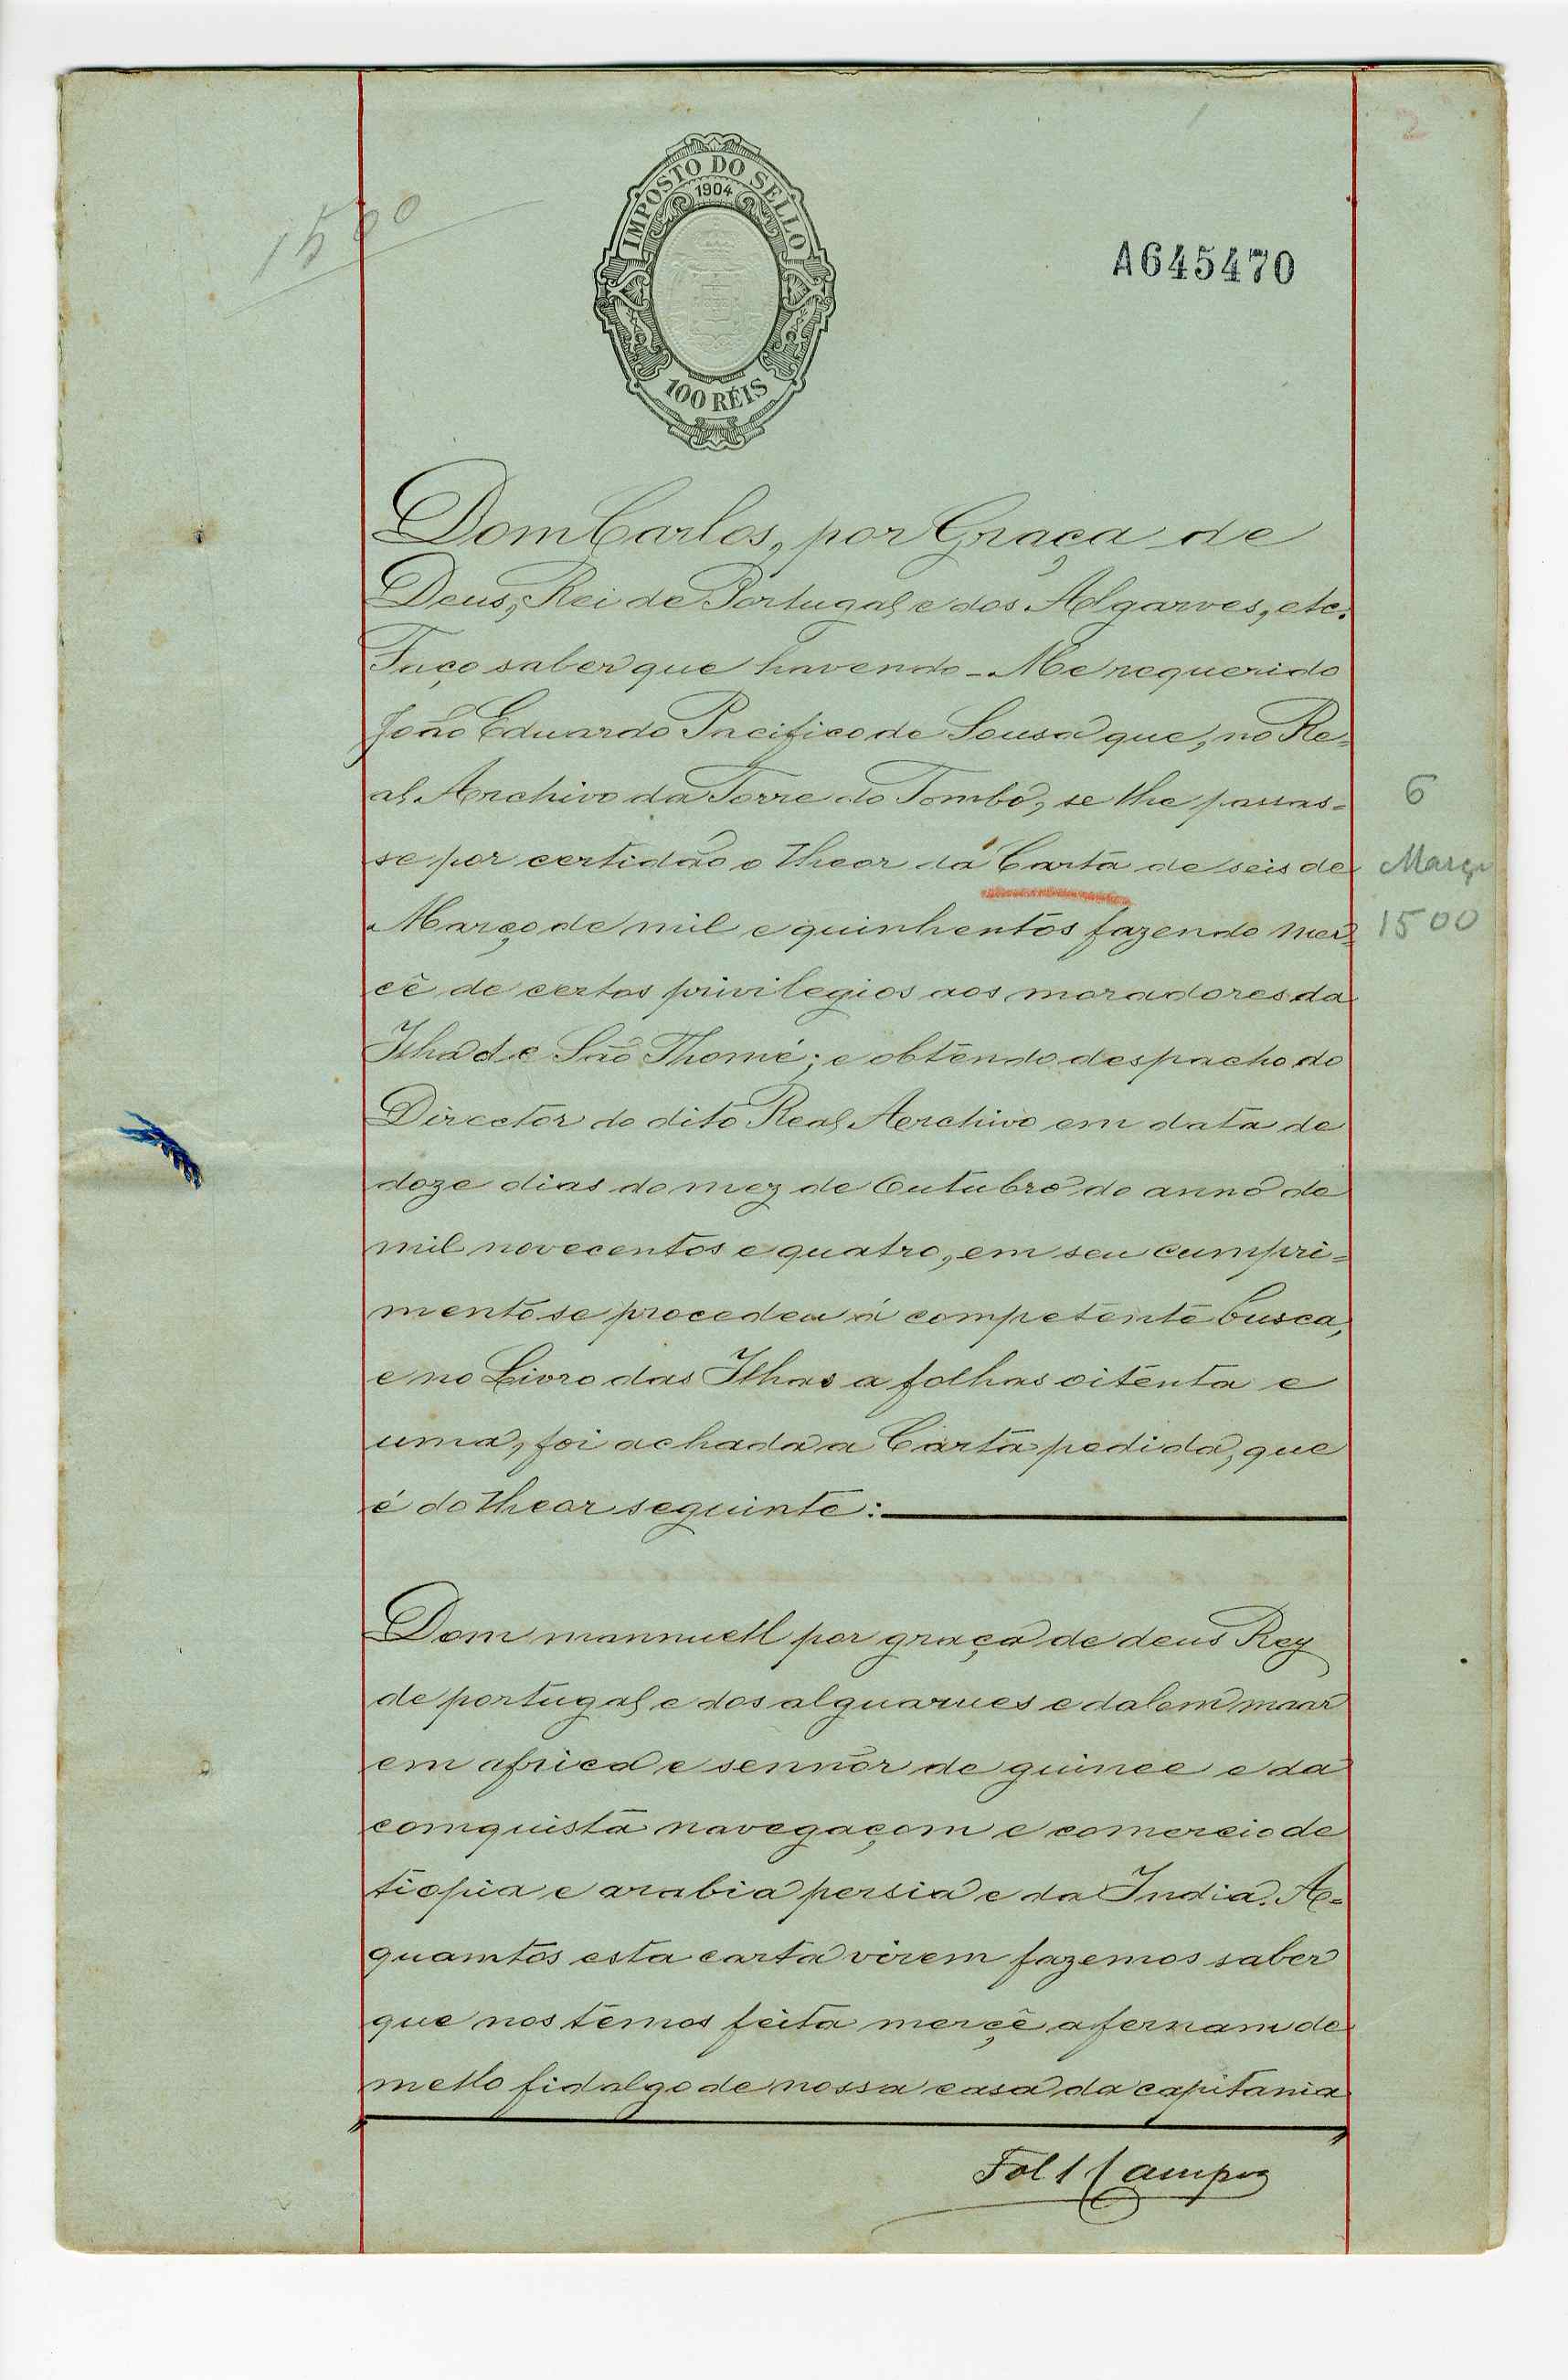 2
1500
IMPOSTO DO SELLO
1904
100 RÉIS
A645470
Dom Carlos, por Graça de
Deus, Rei de Portugal e dos Algarves, etc.
Faço saber que havendo-Me requerido
João Eduardo Pacifico de Sousa que, no Re-
al Archivo da Torre do Tombo, se lhe passas-
se por certidão o theor da Carta de seis de
Março de mil e quinhentos fazendo mer-
cê de certos privilegios aos moradores da
Ilha de São Thomé; e obtendo despacho do
Director do dito Real Archivo em data de
doze dias do mez de Outubro do anno de
mil novecentos e quatro, em seu cumpri-
mento se procedeu á competente busca,
e no Livro das Ilhas a folhas oitenta e
uma, foi achada a Carta pedida, que
é do theor seguinte:
6
Março
1500
Dom mannuell por graça de deus Rey
de portugal e dos alguarues e dalem maar
em africa e sennor de guinee e da
comquista navegaçom e comercio de
tiopia e arabia persia e da India. A-
quamtos esta carta virem fazemos saber
que nos temos feita merçê a fernam de
mello fidalgo de nossa casa da capitania
Fol 1 Campos